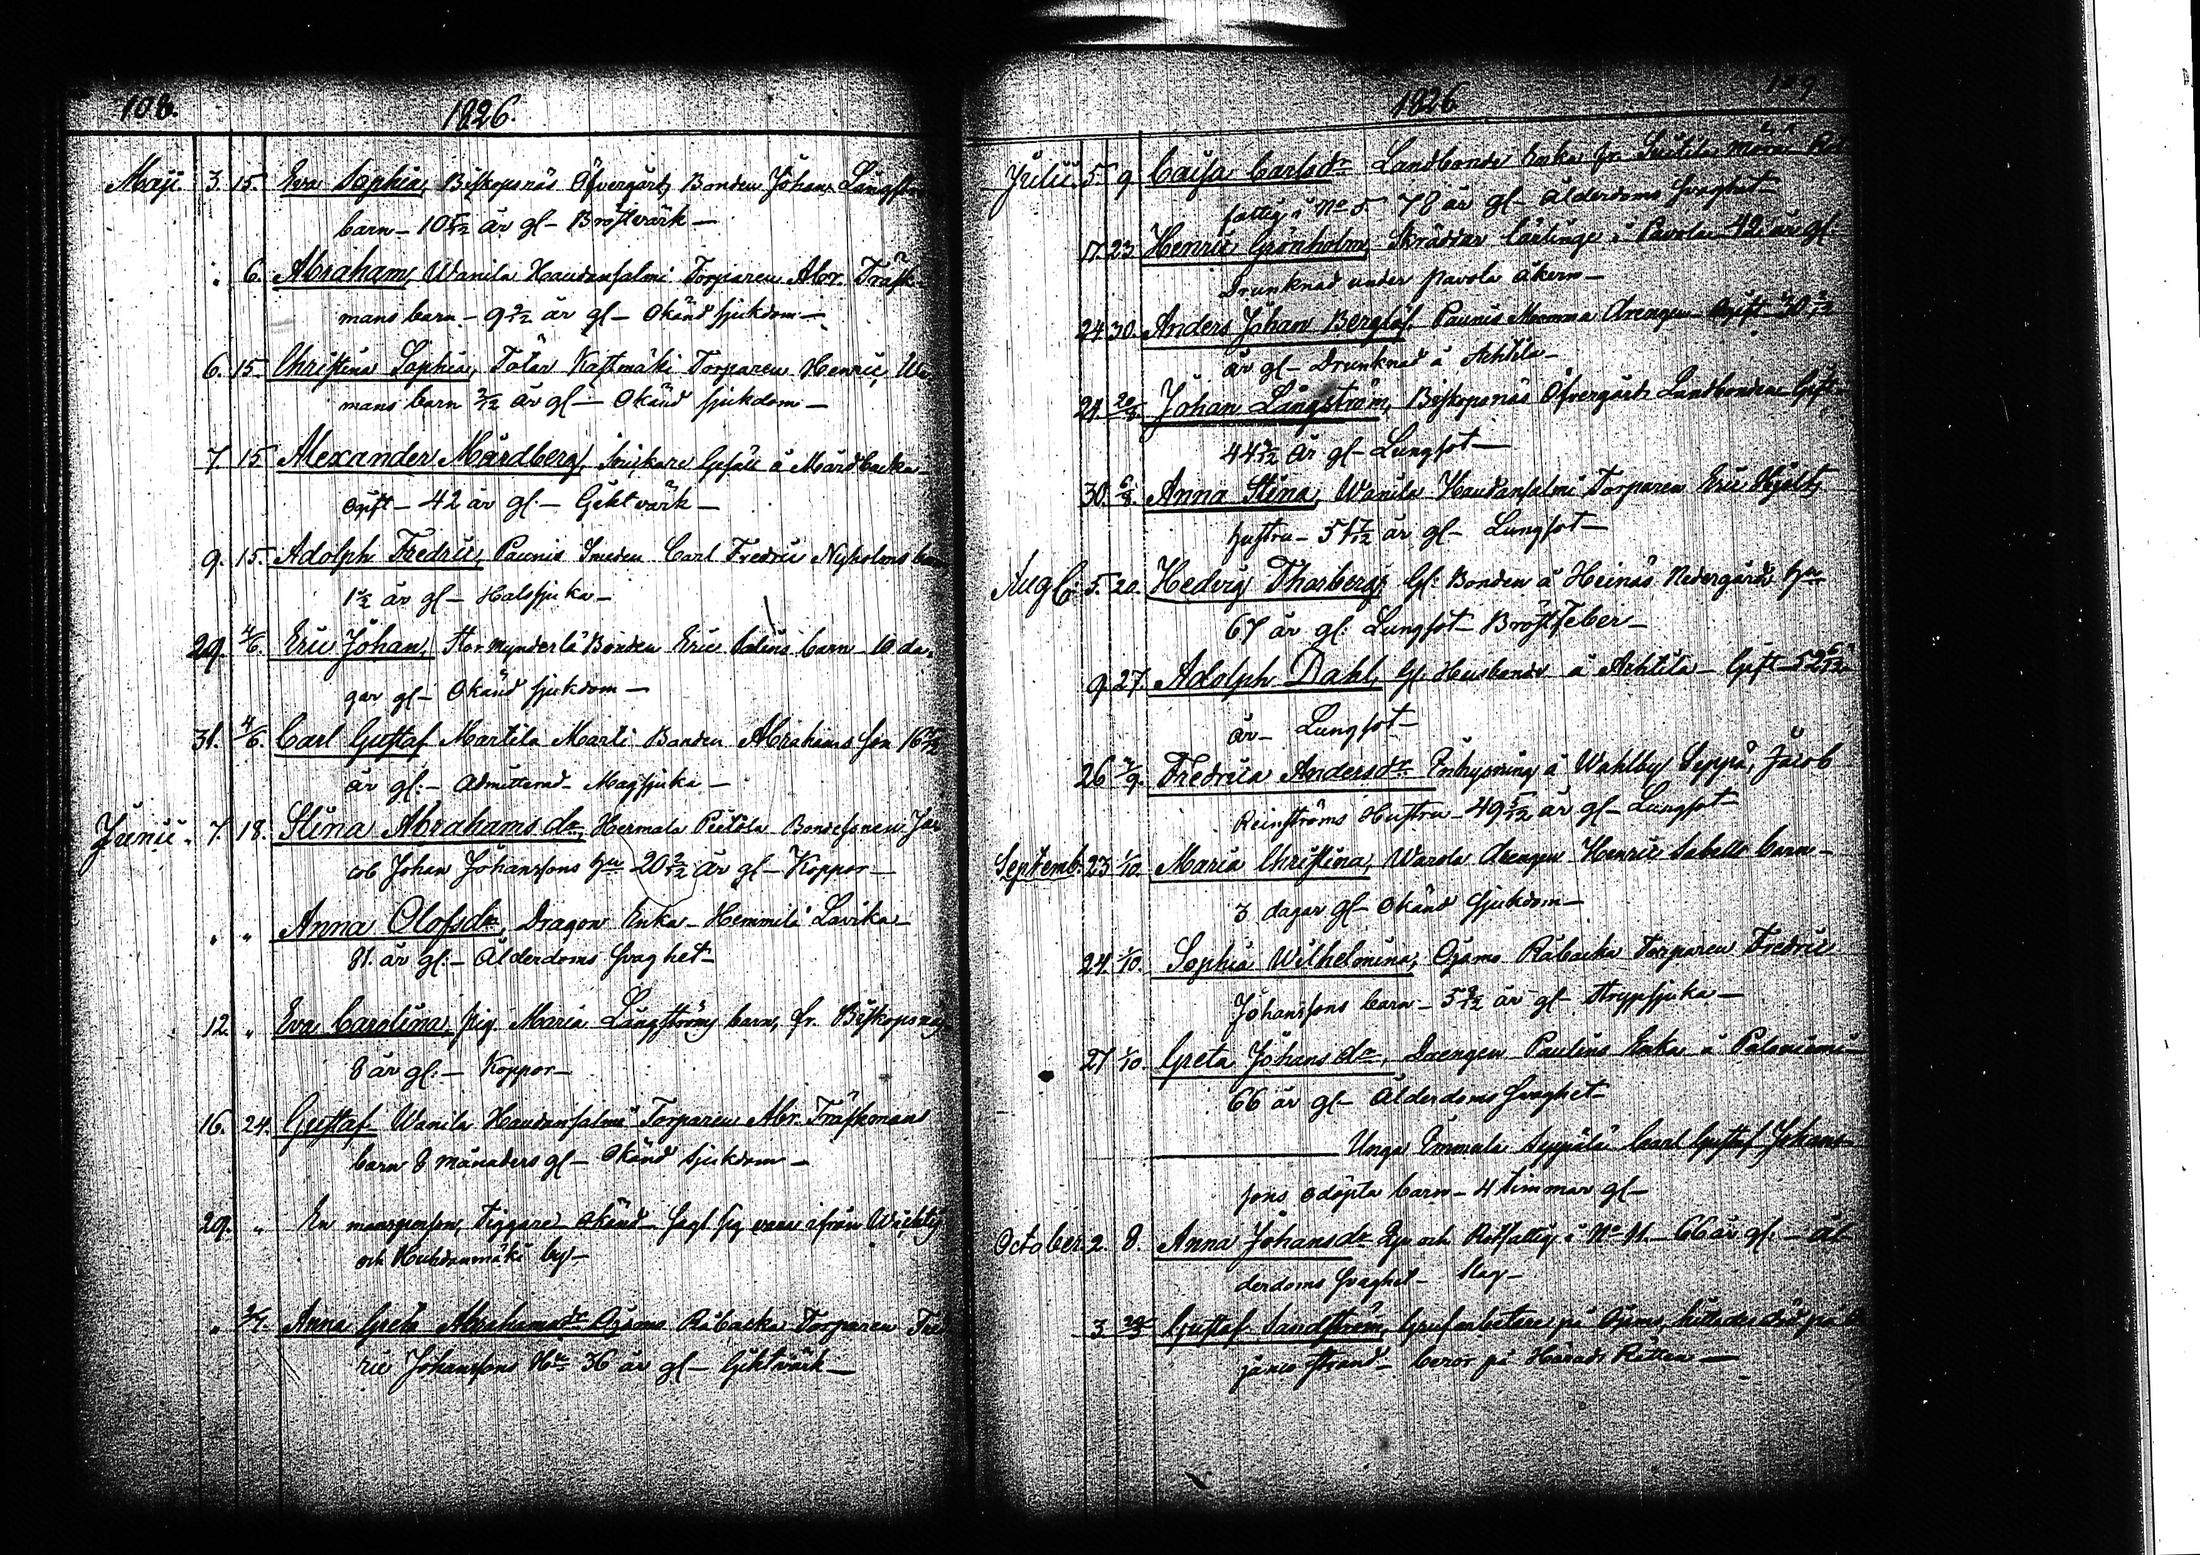 108.
1826.
Maji 3. 15. Eva Sophia, Biskopsnäs Öfvergårds Bonden Johan Långström
barn - 10 5/12 år gl - Bröstvärk -
" 6. Abraham, Wanila Haudansalmi Torparen Abr. Träsk-
mans barn - 9 9/12 år gl - Okänd sjukdom -
6. 15. Christina Sophia, Totar Kastmäki Torparen Henric
mans barn 3/12 år gl - Okänd sjukdom -
7. 15 Alexander Mårdberg, Snickare Gesäll å Mårdbacka -
ogift - 42 år gl. - Giktvärk -
9. 15. Adolph Fredric, Paunis Smeden Carl Fredric Nyholms
år gl - Halssjuka -
29. 4/6. Eric Johan, Stor Mynderlä Bonden Eric barn - 10 da-
gar gl - Okänd sjukdom -
31. 4/6. Carl Gustaf Martila Marti Bonden Abrahams son 16 5/12
år gl. - Admitterad - Magsjuka -
Junii. 7. 18. Stina Abrahams dr, Hermala Pietilä Bondesonen Ja-
cob Johan Johanssons hu 20 3/12 år gl - Koppor -
" " Anna Olofsdr, Dragon Enka - Hemmilä Lavika -
81. år gl. - Ålderdoms svaghet -
12 " Eva Carolina, pig. Maria Långströms barn, fr. Biskopsnäs
8 år gl. - Koppor -
16. 24. Gustaf Wanila Haudansalmi Torparen Abr. Träskmans
barn 8 månaders gl - Okänd sjukdom -
29. " En mansperson, tiggare okänd - sagt sig vara ifrån Wichtis
och Huhdanmäki by -
" 2/7. Anna Greta Abrahamsdr Ojamo Råbacka Torparen Fred-
ric Johanssons Hu 36 år gl - Giktvärk -
109
1826
Julii. 5. 9 Caisa Carlsdr Landbonde Enka fr. Suitila
fattig i No 5. 78 år gl - Ålderdoms svaghet -
17. 23 Henric Grönholm, Skräddar Lärlinge i Pavola 42 år gl.
Drunknad under Pavola åkern -
24 30. Anders Johan Berglöf, Paunis Drengen Ogift 30
år gl - Drunknad å Achtila -
24. 20/8. Johan Långström, Biskopsnäs Öfvergårds Landbonden Gift
44 9/12 år gl - Lungsot -
30. 6/8 Anna Stina, Wanila Haudansalmi Torparen Eric
hustru - 51 7/12 år gl - Lungsot -
Aug. 5. 20. Hedvig Thorberg, Gl. Bonden å Heinäs Nedergårds hu
67 år gl. Lungsot - Bröstfeber -
9. 27. Adolph Dahl, Gl. Husbonde å Achtila - Gift - 52
år - Lungsot -
26 3/9. Fredrica Andersdr Inhysning å Wahlby Seppä, Jacob
Reinströms Hustru - 49 5/12 år gl - Lungsot -
Septemb. 23 1/10. Maria Christina, Warola Drengen Henric Sabells barn -
3 dagar gl - Okänd sjukdom -
24. 1/10. Sophia Wilhelmina, Ojamo Råbacka Torparen Fredric
Johanssons barn - 5 8/12 år gl - Strypsjuka -
27 1/10. Greta Johansdr, Drengen Paulins Enka å Paloniemi -
66 år gl - Ålderdoms svaghet -
Unga Immola Seppälä Carl Gustaf Johans-
sons odöpta barn - 4 timmar gl -
October. 2. 8. Anna Johansdr och Rotfattig i No 11. - 66 år gl. - ål-
derdoms svaghet - Slag -
3 Gustaf Sandström, Grufarbetare på Ojamo, hittades död på
strand - beror på Härads Rätten -